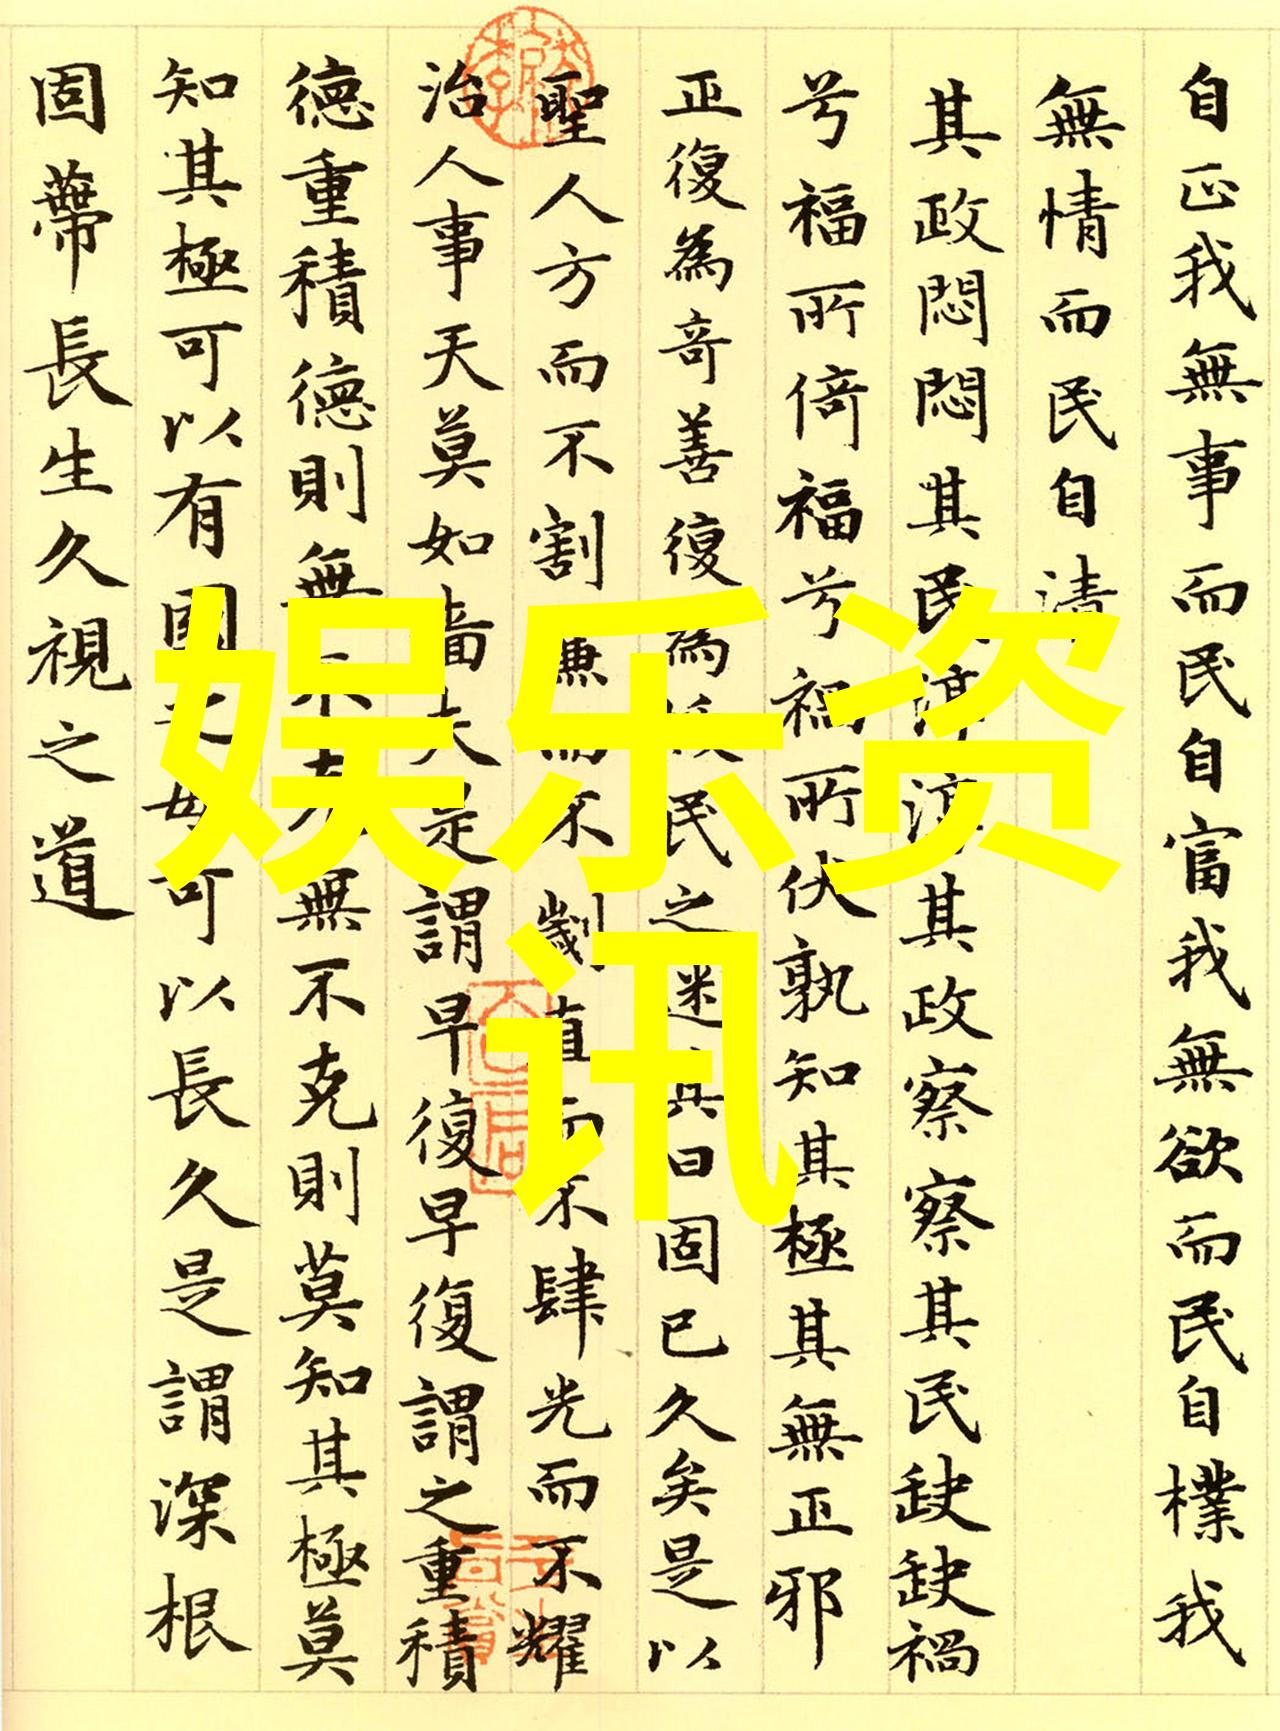 自正我無事而民自富我無欲而民自樸我
無情而民自清
其政悶悶其民淳淳其政察察其民缺缺禍
兮福所倚福兮禍所伏孰知其極其無正邪
正復為奇善復為民之迷其日固已久矣是以
聖人方而不割廉而不劌直而不肆光而不耀
治人事天莫如嗇夫是謂早復早復謂之重積
德重積德則無不克無不克則莫知其極莫
知其極可以有國之母可以長久是謂深根
固蔕長生久視之道
娱乐资
讯